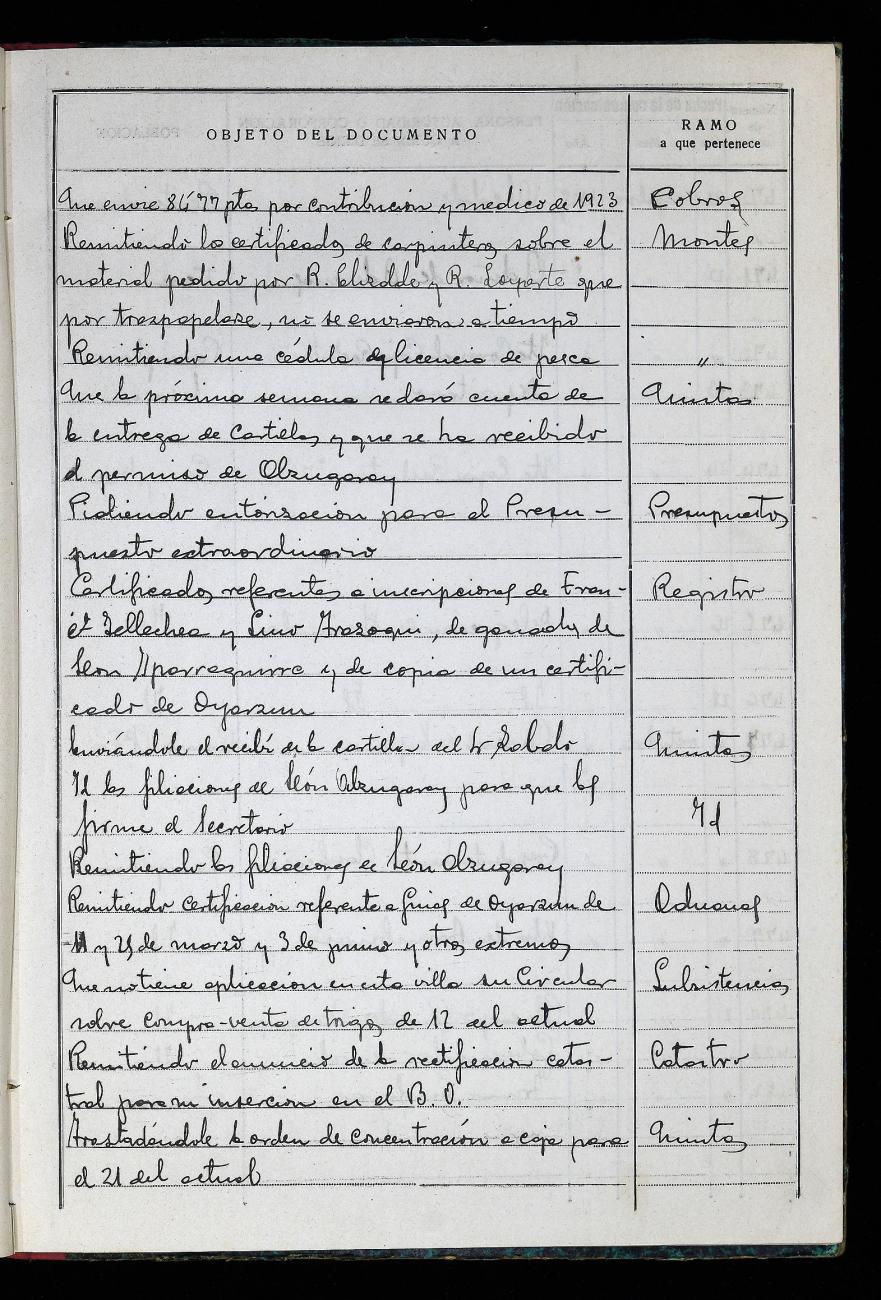 OBJETO DEL DOCUMENTO
RAMO
a que pertenece
Que envie 86'77 pts por contribución y medico de 1923 Cobros
Remitiendo los certificados de carpinteros sobre el Montes
material pedido por R. Elizalde y R. Loyarte que
por traspapelarse, no se enviaron a tiempo
Remitiendo una cédula de licencia de pesca "
Que la próxima semana se dará cuenta de Quintas
la entrega de Cartillas y que se ha recibido
el permiso de Olzugaray
Pidiendo autorización para el Presu- Presupuestos
puesto extraordinario
Certificados referentes a inscripciones de Fran- Registro
co Tellechea y Lino Arazoqui, de ganados de
León Yparraguirre y de copia de un certifi-
cado de Oyarzun
Enviándole el recibí de la cartilla del Sr Quintas
Id las filiaciones de León Olzugaray para que las
firme el Secretario Id
Remitiendo las filiaciones de León Olzugaray
Remitiendo certificación referente a Guias de Oyarzun de Aduanas
11 y 29 de marzo y 3 de junio y otros extremos
Que no tiene aplicación en esta villa su Circular Subsistencias
sobre compra-venta de trigos de 12 del actual
Remitiendo el anuncio de la rectificación catas- Catastro
tral para su inserción en el B. O.
Trasladándole la orden de concentración a caja para Quintas
el 21 del actual